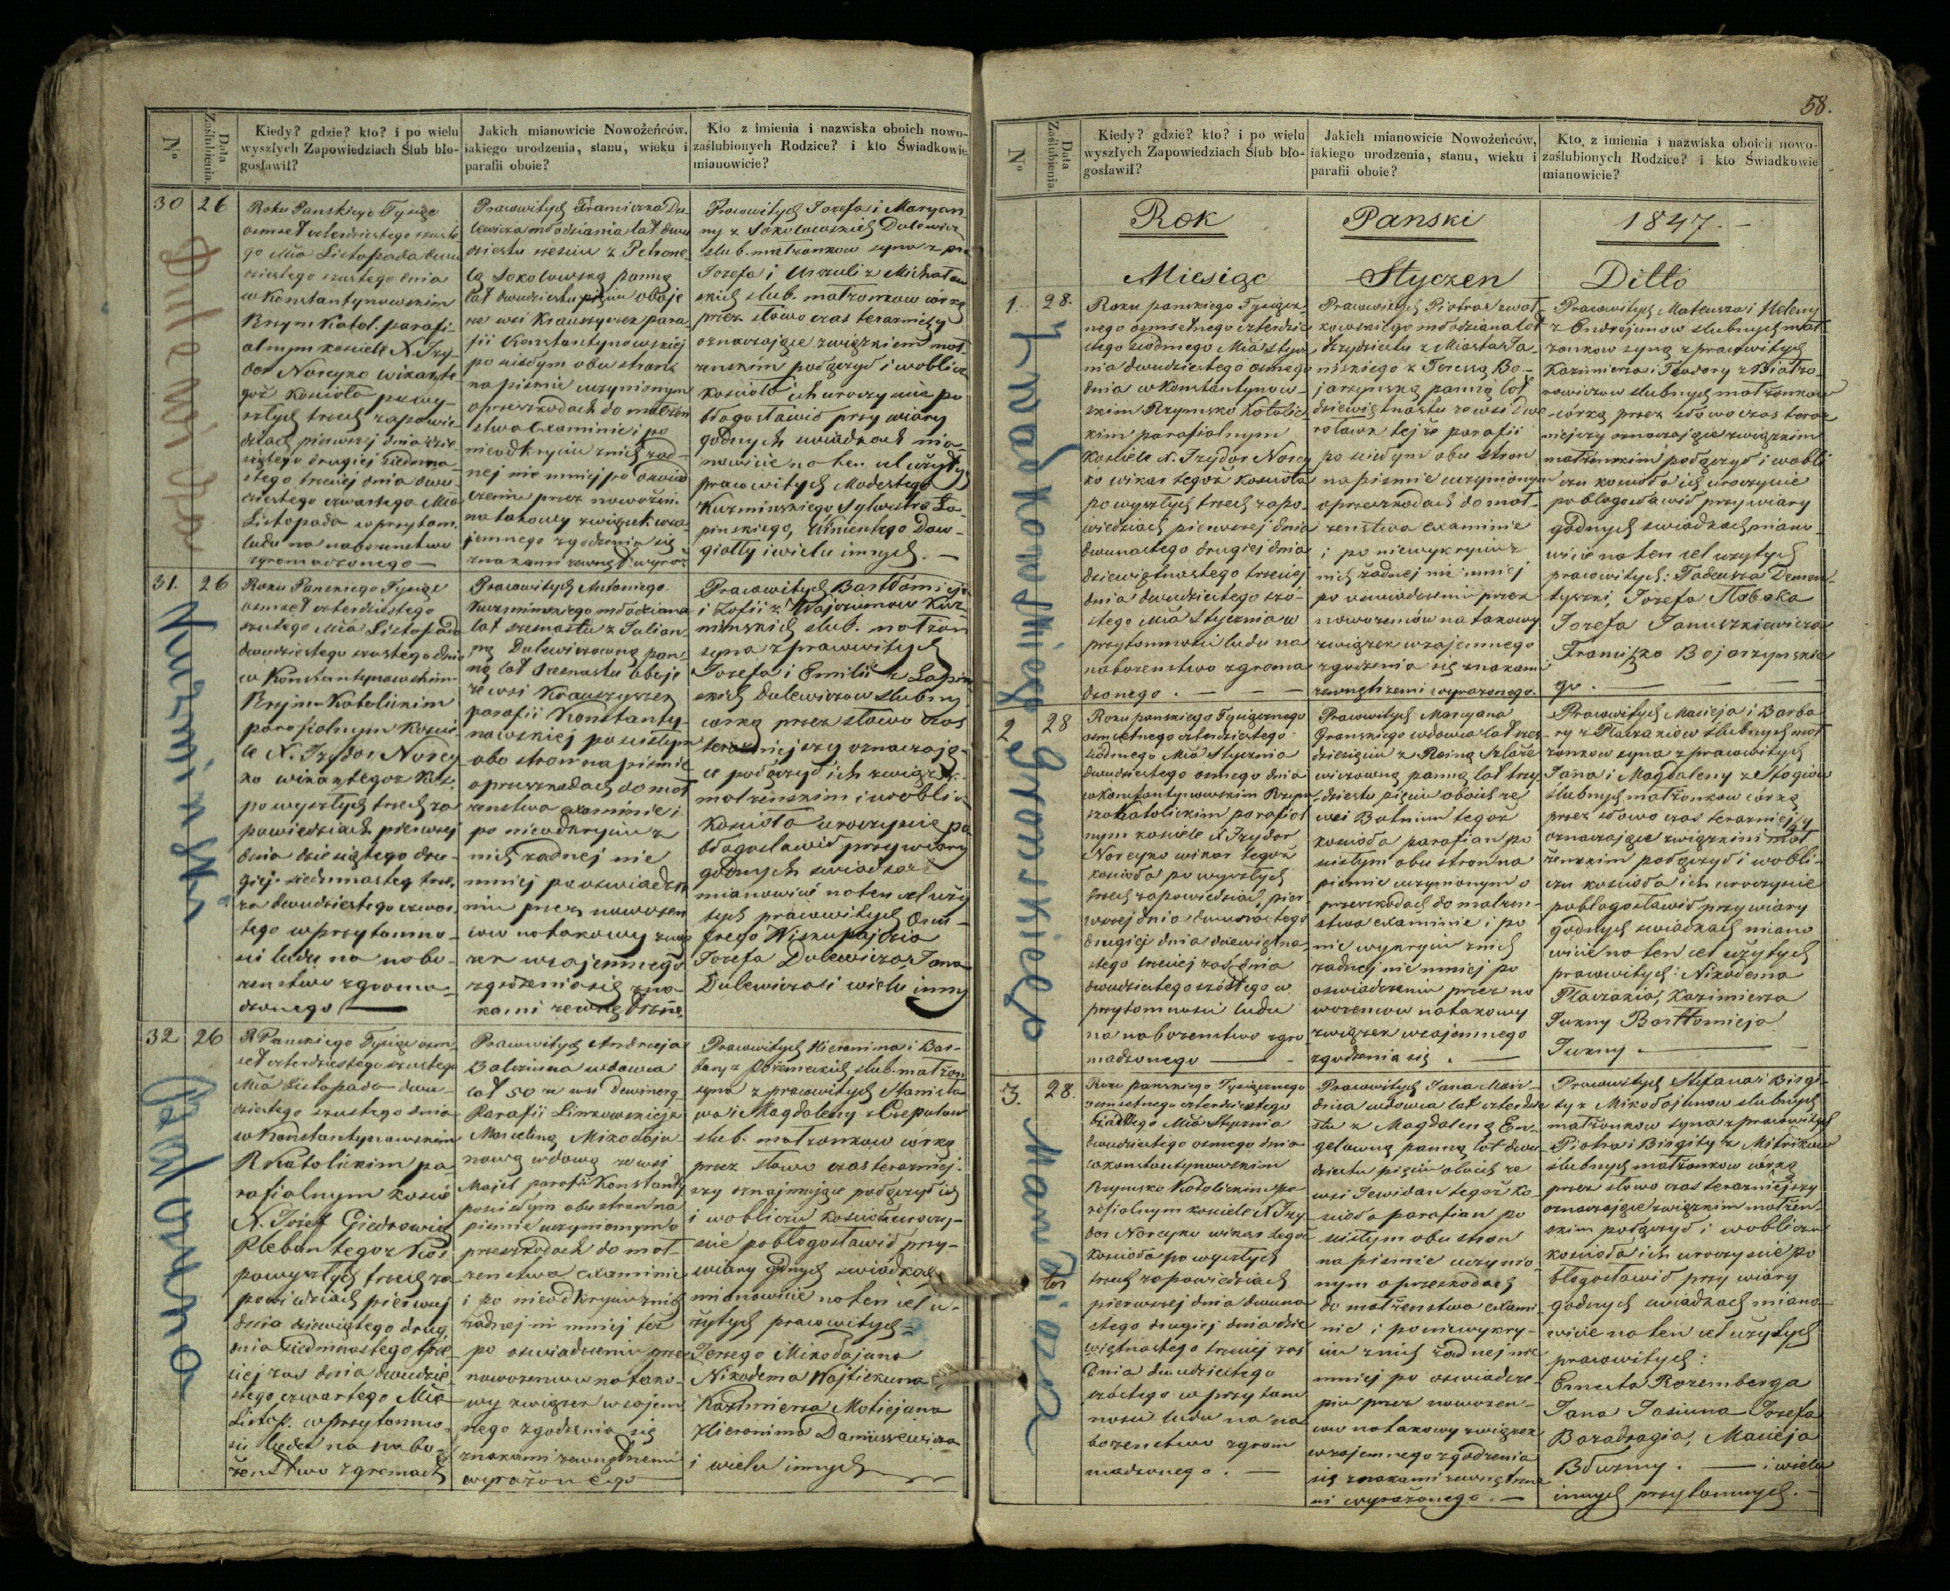 N°
Data Zaślubienia.
Kiedy? gdzie? kto? i po wielu
wyszłych Zapowiedziach Ślub bło-
gosławił?
Jakich mianowicie Nowożeńców,
iakiego urodzenia, stanu, wieku i
parafii oboie?
Kto z imienia i nazwiska oboich nowo-
zaślubionych Rodzice? i kto Świadkowie
mianowicie?
30
26
Roku Panskiego Tysiąc
osmset czterdziestego szoste
go Mca Listopada dwu
dziestego szostego dnia
w Konstantynowskim
Rzym Katol. parafi-
alnym kosciele X. Izy-
dor Noreyko wikary te-
goż Kościoła po wy-
szłych trzech zapowie
dziach pierwszej dnia dzie
siątego drugiej siedmna-
stego trzeciej dnia dwu
dziestego czwartego Mca
Listopada w przytom.
ludu na nabożenstwo
zgromadzonego —
Pracowitych Franciszka Du-
lewicza młodziana lat dwu
dziestu sześciu z Petrone-
lą Sokołowską panną
lat dwudziestu pięciu oboje
ze wsi Krauszyszek para-
fii Konstantynowskiej
po ścisłym obu stron
na piśmie uczynionym
o przeszkodach do małżen
stwa examinie i po
nieodkryciu z nich żad-
nej nie mniej po oświad
czeniu przez nowożeń.
na takowy związek wza
jemnego zgodzenia się
znakami zewnęt. wyraż
Pracowitych Jozefa i Maryan-
ny z Sokołowskich Dulewicz
slub. małżonkow syna z pra
Jozefa i Urszuli z Michałow
skich slub. małżonkow córką
przez słowo czas teraznieyszy
oznaczające związkiem mał-
żenskim połączył i w oblicz
kościoła ich uroczyscie po
błogosławił przy wiary
godnych swiadkach mia
nowicie na ten cel użyty
pracowitych Modestego
Kuzminskiego Sylwestra Ło
pinskiego, Wincentego Daw-
giałły i wielu innych. —
31.
26
Roku Panskiego Tysiąc
osmset czterdziestego
szostego Mca Listopada
dwudziestego szostego dnia
w Konstantynowskim
Rzym-Katolickim
parafialnym Kosciel
e X. Izydor Norey
ko wikary tegoż Kość.
po wyszłych trzech za
powiedziach pierwszej
dnia dziesiątego dru-
giej siedmnastego trze.
za dwudziestego czwar
tego w przytomno-
sci ludu na nabo-
żenstwo zgroma-
dzonego —
Pracowitych Antoniego
Kuzminskiego młodziana
lat osmnastu z Julian
ną Dulewiczowną pan
ną lat szesnastu oboje
ze wsi Krauszyszek
parafii Konstanty-
nowskiej po scisłym
obu stron na piśmie
o przeszkodach do mał
żenstwa examinie i
po nieodkryciu z
nich żadnej nie
mniej po oswiadcze
niu przez nowożen
cow na takowy związ
zek wzajemnego
zgodzenia się zna
kami zewnętrzne.
Pracowitych Bartłomieja
i Zofii z Wojciunow Kuz
minskich slub. małżon
syna z pracowitych
Jozefa i Emilii z Łopin
skich Dulewiczow slubny
corką przez słowo czas
teraznieyszy oznaczają-
ce połączył ich związk.
małżenskim i w oblicz
kościoła uroczyscie po
błogosławił przy wiary
godnych swiadkach
mianowicie na ten cel uży
tych pracowitych Onu-
frego Wiszkupajcia
Jozefa Dulewicza, Jana
Dulewicza i wielu inny
32
26
R Panskiego Tysiąc osm
set czterdziestego szostego
Mca Listopada dwu-
dziestego szostego dnia
w Konstantynowskim
R Katolickim pa
rafialnym koscie
X. Jozef Giedrowicz
Pleban tegoż Kość
po wyszłych trzech za
powiedziach pierwszej
dnia dziewiątego drug.
dnia siedmnastego trze
ciej zas dnia dwudzie
stego czwartego Mca
Listop. w przytomno.
sci ludu na nabo-
żenstwo zgromadz
Pracowitych Andrzeja
Balciuna wdowca
lat 50 ze wsi Dewinorg
Parafii Linkowskiej z
Marcelą Mikołaja
nową wdową ze wsi
Majel parafii Konstanty
po scisłym obu stron na
piśmie uczynionym o
przeszkodach do mał-
żenstwa examinie
i po nieodkryciu z nich
żadnej ni mniej też
po oswiadczeniu prze
nowożencow na tako-
wy związek wzajem
nego zgodzenia się
znakami zewnętrznemi
wyrażonego
Pracowitych Hieronima i Bar-
bary z slub. małżon
syna z pracowitych Stanisła
wa i Magdaleny z Ciepułow
slub. małżonkow córką
przez słowo czas teraznieј.
szy oznajmujące połączył ich
i w obliczu kościoła uroczy-
scie pobłogosławił przy-
wiary godnych swiadkach
mianowicie na ten cel u-
żytych pracowitych =
Jerzego Mikołajuna
Nikodema Wojtiekuna
Kazimierza Motiejuna
Hieronima Daniuszewicza
i wielu innych
Dulewicz
Kuzminski
Balciuna
58.
N°
Data Zaślubienia.
Kiedy? gdzie? kto? i po wielu
wyszłych Zapowiedziach Ślub bło-
gosławił?
Jakich mianowicie Nowożeńców,
iakiego urodzenia, stanu, wieku i
parafii oboie?
Kto z imienia i nazwiska oboich nowo-
zaślubionych Rodzice? i kto Świadkowie
mianowicie?
Rok Panski 1847. -
Miesiąc Styczen Ditto
1.
28.
Roku panskiego Tysiącz-
nego osmsetnego czterdzie
stego siodmego Mca Stycz
nia dwudziestego osmego
dnia w Konstantynow-
skim Rzymsko Katolic-
kim parafialnym
Kosciele X. Izydor Norey
ko wikar tegoż Kościoła
po wyszłych trzech zapo-
wiedziach pierwszej dnia
dwunastego drugiej dnia
dziewiętnastego trzeciej
dnia dwudziestego szo-
stego Mca Stycznia w
przytomnosci ludu na
nabożenstwo zgroma
dzonego. — — —
Pracowitych Piotra Zwał-
kowskiego młodziana lat
trzydziestu z Miasta Ja-
niskiego z Teressą Bo-
jarzynską panną lat
dziewiętnastu ze wsi Dwo
roławk tejże parafii
po scisłym obu stron
na piśmie uczynionym
o przeszkodach do mał-
żenstwa examinie
i po niewykryciu z
nich żadnej nie mniej
po oswiadczeniu przez
nowożencow na takowy
związek wzajemnego
zgodzenia się znakami
zewnętrznemi wyrażonego.
Pracowitych Mateusza i Heleny
z Endrejunow slubnych mał-
żonkow syna z pracowitych
Kazimierza i Teodory z Białło-
nowiczow slubnych małżonkow
córką przez słowo czas teraz
niejszy oznaczające związkim
małżenskim połączył i w obli
czu kościoła ich uroczyscie
pobłogosławił przy wiary
godnych swiadkach miano
wicie na ten cel użytych
pracowitych: Tadeusza Demen-
tyszki, Jozefa Ttoboka
Jozefa Januszkiewicza
Franciszka Bojarzynskie
go. — — —
2
28
Roku panskiego Tysiącznego
osmsetnego czterdziestego
siodmego Mca Stycznia
dwudziestego osmego dnia
w Konstantynowskim Rzym
sko Katolickim parafial
nym kosciele X Izydor
Noreyko wikar tegoż
kościoła po wyszłych
trzech zapowiedziach, pier
wszej dnia dwunastego
drugiej dnia dziewiętna-
stego trzeciej zaś dnia
dwudziestego szostego w
przytomnosci ludu
na nabożenstwo zgro-
madzonego —
Pracowitych Marcyana
Gronskiego wdowca lat szes
dziesięciu z Rozą Szlaże-
wiczowną panną lat trzy
dziestu pięciu oboich ze
wsi Batniun tegoż
kościoła parafian po
scisłym obu stron na
piśmie uczynionym o
przeszkodach do małżen-
stwa examinie i po
nie wykryciu z nich
żadnej nie mniej po
oswiadczeniu przez no
wożencow na takowy
związek wzajemnego
zgodzenia się. —
Pracowitych Macieja i Barba
ry z Płaczakow slubnych mał
żonkow syna z pracowitych
Jana i Magdaleny z Stogiow
slubnych małżonkow córką
przez słowo czas teraznieјszy
oznaczające związkim mał
żenskim połączył i w obli-
czu kościoła ich uroczyscie
pobłogosławił przy wiary
godnych swiadkach miano
wicie na ten cel użytych
pracowitych: Nikodema
Płaczakia, Kazimierza
Jukny Bartłomieja
Jukny. —
3.
28.
Roku panskiego Tysiącznego
osmsetnego czterdziestego
siodmego Mca Stycznia
dwudziestego osmego dnia
w Konstantynowskim
Rzymsko Katolickim pa-
rafialnym kosciele X Izy-
dor Noreyko wikar tegoż
Kościoła po wyszłych
trzech zapowiedziach
pierwszej dnia dwuna-
stego drugiej dnia dzie
więtnastego trzeciej zaś
Dnia dwudziestego
szostego w przytom
nosci ludu na na
bożenstwo zgrom
madzonego. —
Pracowitych Jana Man-
dziea wdowca lat czterdzie
stu z Magdaleną En-
gelowną panną lat dwu
dziestu pięciu oboich ze
wsi Jewidan tegoż ko-
ścioła parafian po
scisłym obu stron
na piśmie uczynio
nym o przeszkodach
do małżenstwa exami-
nie i po niewykry-
ciu z nich żadnej nie
mniej po oswiadcze-
niu przez nowożen-
cow na takowy związek
wzajemnego zgodzenia
się znakami zewnętrzne
mi wyrażonego. —
Pracowitych Stefana i Birgi-
ty z Mikołajunow slubnych
małżonkow syna z pracowitych
Piotra i Birgity z Mitrikow
slubnych małżonkow córką
przez słowo czas teraznieјszy
oznaczające związkim małżen-
skim połączył i w obliczu
kościoła ich uroczyscie po
błogosławił przy wiary
godnych swiadkach miano
wicie na ten cel użytych
pracowitych:
Ernesta Rozemberga
Jana Jasiuna Jozefa
Bazadragia, Macieja
Błuzmy. — i wielu
innych przytomnych. —
Zwałkowskiego
Gronskiego
Mandziea